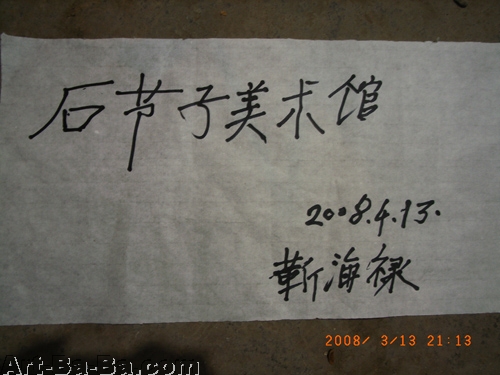 石节子美术馆
2008.4.13.
靳海禄
2008/ 3/13 21:13
Art-Ba-Ba.com